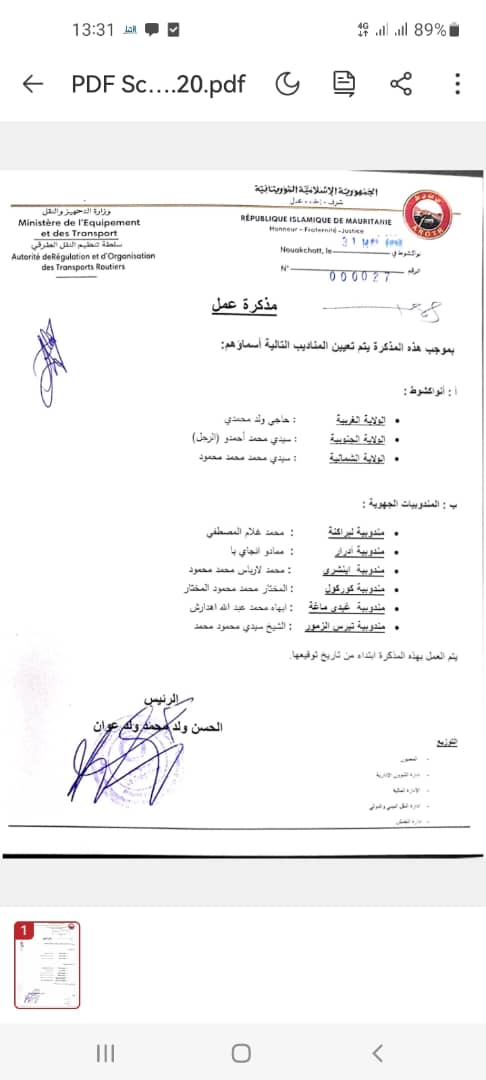 13:31
4G
89%
PDF Sc....20.pdf
الجمهورية الإسلامية الموريتانية
شرف - إخاء - عدل
وزارة التجهيز والنقل
Ministère de l'Equipement
et des Transport
سلطة تنظيم النقل الطرقي
Autorité deRégulation et d'Organisation
des Transports Routiers
RÉPUBLIQUE ISLAMIQUE DE MAURITANIE
Honneur –Fraternité –Justice
Nouakchott, le
31
نواكشوط في
N°
000027
الرقم
AROTR
مذكرة عمل
بموجب هذه المذكرة يتم تعيين المناديب التالية أسماؤهم:
أ : أنواكشوط :
• الولاية الغربية : حاجي ولد محمدي
• الولاية الجنوبية : سيدي محمد أحمدو (الرجل)
• الولاية الشمالية : سيدي محمد محمد محمود
ب : المندوبيات الجهوية :
• مندوبية لبراكنة : محمد غلام المصطفي
• مندوبية آدرار : ممادو انجاي با
• مندوبية اينشري : محمد لارباس محمد محمود
• مندوبية كوركول : المختار محمد محمود المختار
• مندوبية غيدي ماغة : ابهاه محمد عبد الله اهدارش
• مندوبية تيرس الزمور : الشيخ سيدي محمود محمد
يتم العمل بهذه المذكرة ابتداء من تاريخ توقيعها.
الرئيس
الحسن ولد محمد ولد عوان
التوزيع
- المعنيون
- ادارة الشؤون الادارية
- الادارة المالية
- ادارة النقل البيني والدولي
- ادارة التفتيش
1